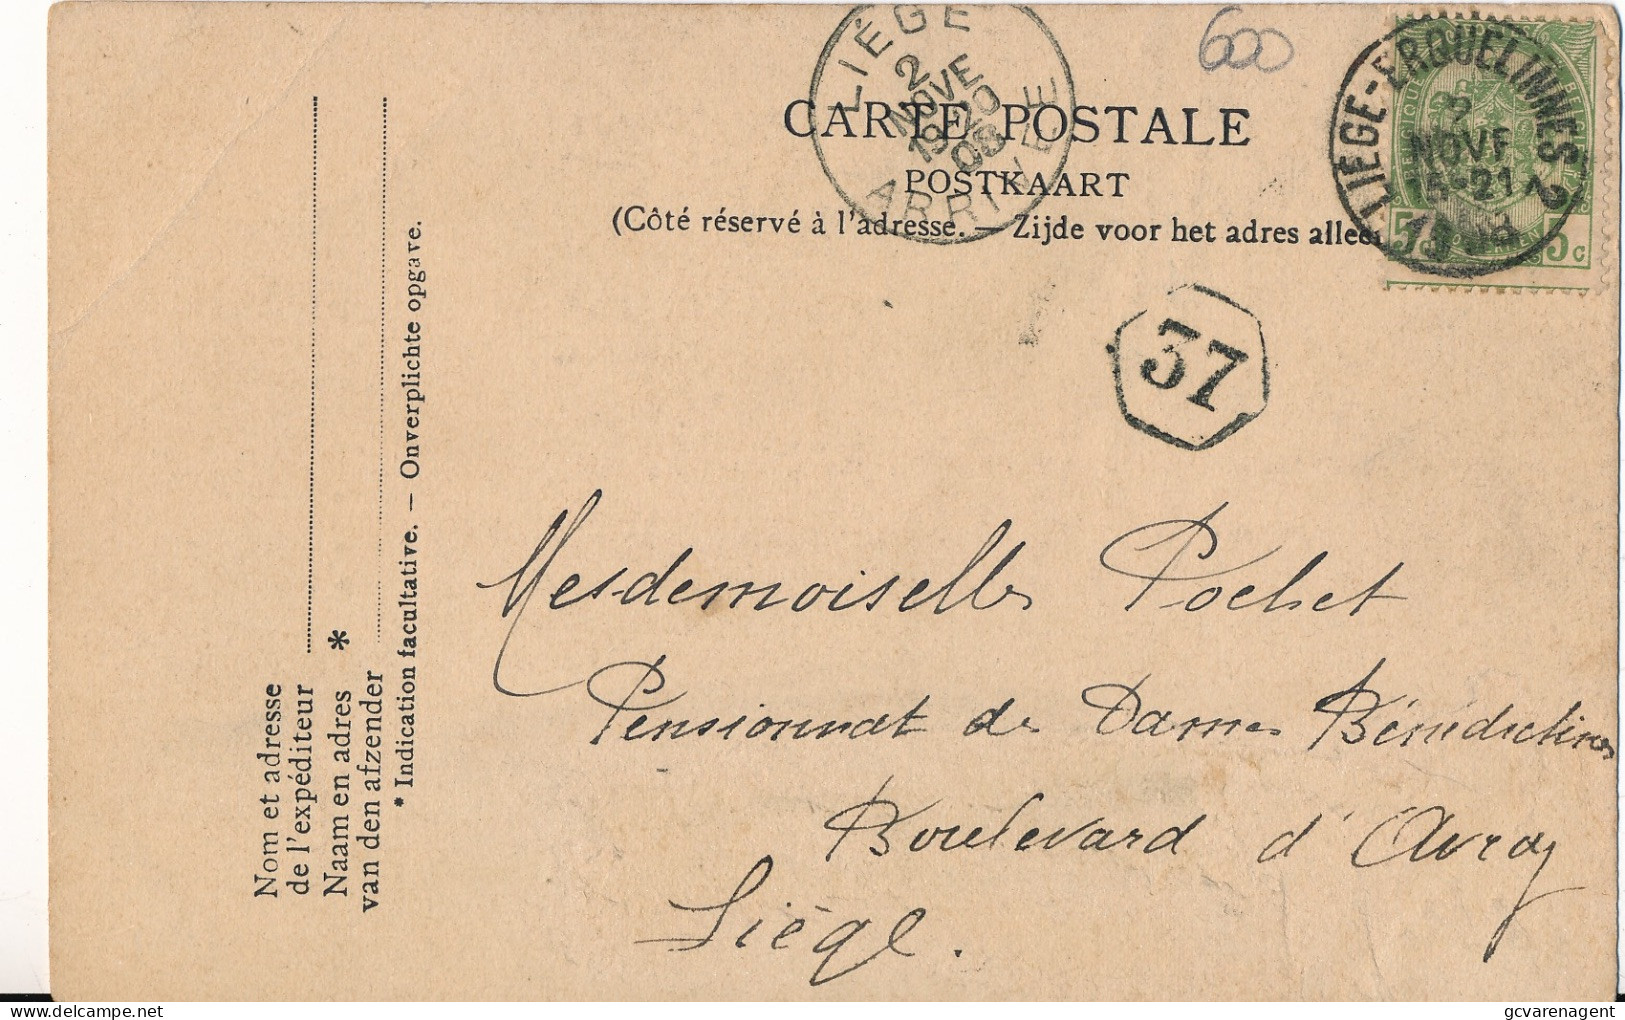 600
LIÉGE
2
NOVE
19-20
08
ARRIVÉE
LIEGE-ERQUELINNES 2
2
NOVE
15-21
1908
5 5c
CARTE POSTALE
POSTKAART
(Côté réservé à l'adresse. — Zijde voor het adres allee
37
Mesdemoiselles Pochet
Pensionnat de Dames Bénédictines
Boulevard d'Avroy
Liége.
Nom et adresse
de l'expéditeur
Naam en adres *
van den afzender
* Indication facultative. — Onverplichte opgave.
gcvarenagent